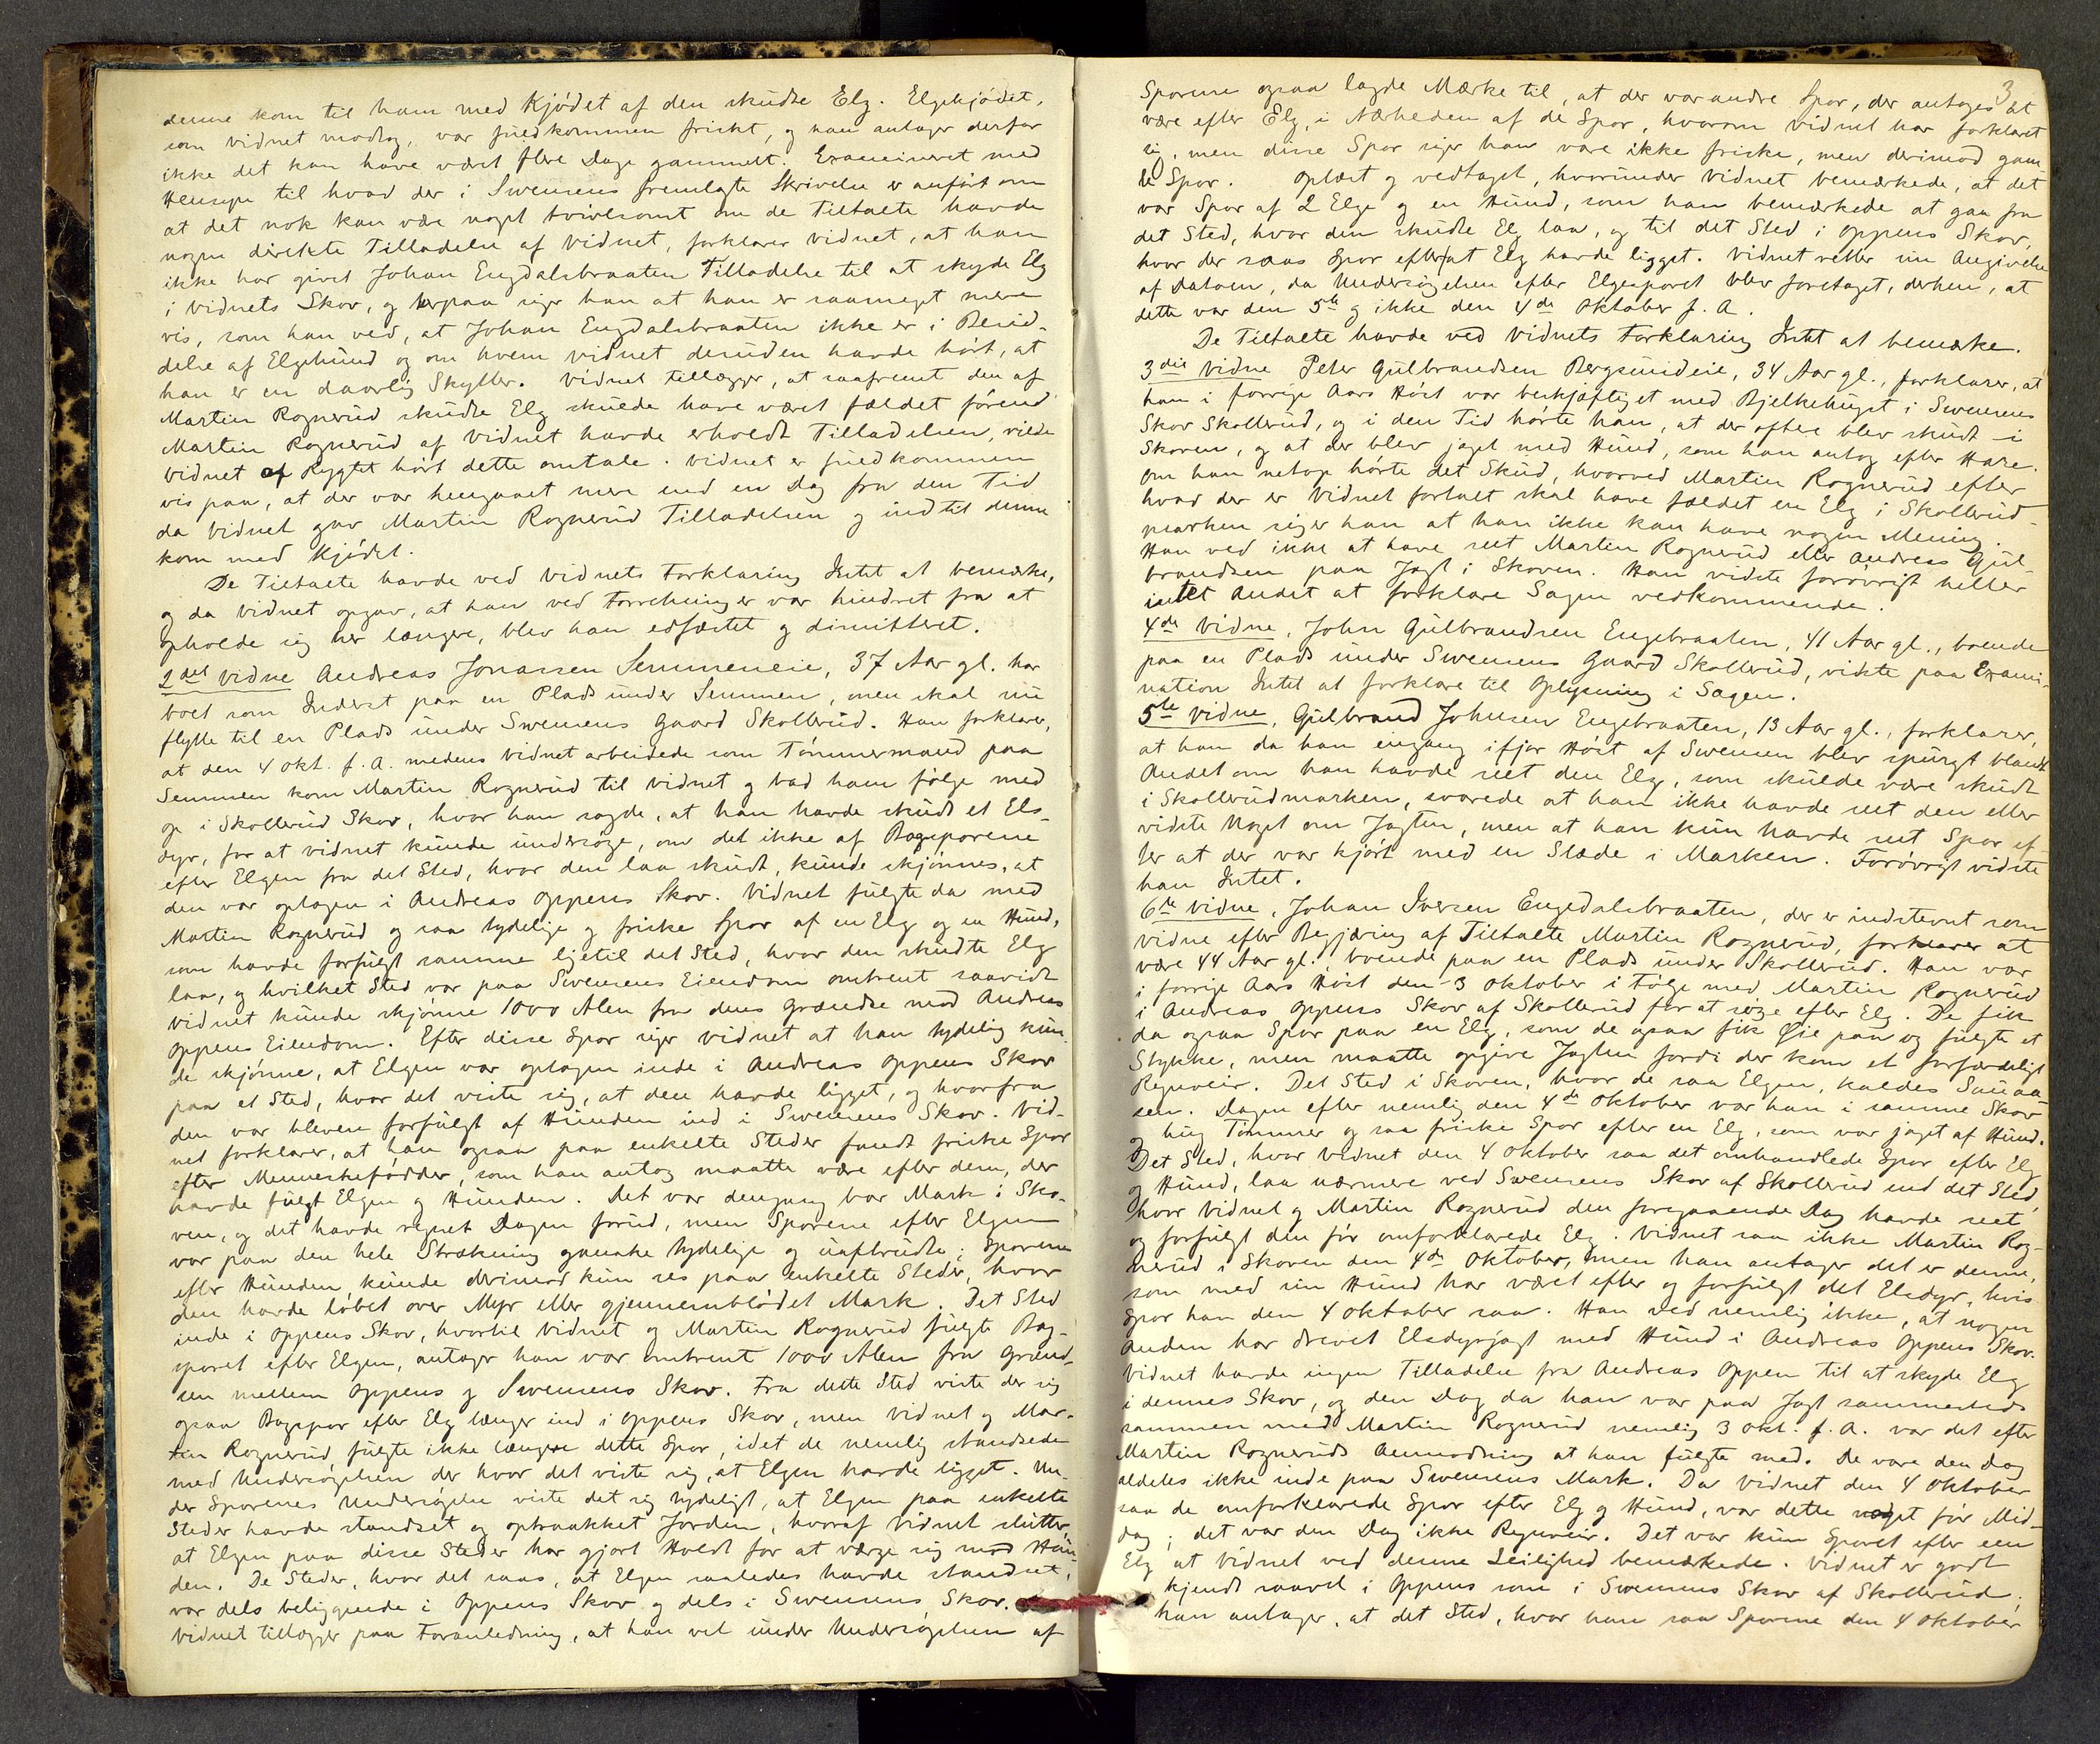 denne kom til ham med Kjødet af den skudte Elg. Elgekjødet,
som Vidnet modtog, var fuldkommen friskt, og han antager derfor
ikke det kan have været flere Dage gammelt. Examineret med
Hensyn til hvad der i Swensens fremlagte Skrivelse er anført om
at det nok kan være noget tvivlsomt om de Tiltalte havde
nogen direkte Tilladelse af Vidnet, forklarer Vidnet, at han
ikke har givet Johan Engdalsbraaten Tilladelse til at skyde Elg
i Vidnets Skov, og herpaa siger han at han er saameget mere
vis, som han ved, at Johan Engdalsbraaten ikke er i Besid-
delse af Elgehund og om hvem Vidnet desuden havde hørt, at
han er en daarlig Skytter. Vidnet tillægger, at saafremt den af
Martin Rognerud skudte Elg skulde have været fældet førend
Martin Rognerud af Vidnet havde erholdt Tilladelsen, vilde
Vidnet af Rygtet hørt dette omtale. Vidnet er fuldkommen
vis paa, at der var hengaaet mere end en Dag fra den Tid
da Vidnet gav Martin Rognerud Tilladelsen og indtil denne
kom med Kjødet.
De Tiltalte havde ved Vidnets Forklaring Intet at bemærke,
og da Vidnet opgav, at han ved Forretninger var hindret fra at
opholde sig her længere, blev han edfæstet og dimitteret.
2det Vidne Andreas Jonassen Semmeneie, 37 Aar gl. har
boet som Inderst paa en Plads under Semmen, men skal nu
flytte til en Plads under Swensens Gaard Skollerud. Han forklarer,
at den 4 Okt. f. A. medens Vidnet arbeidede som Tømmermand paa
Semmen kom Martin Rognerud til Vidnet og bad ham følge med
op i Skollerud Skov, hvor han sagde, at han havde skudt et Els-
dyr, for at Vidnet kunde undersøge, om det ikke af Bagsporene
efter Elgen fra det Sted, hvor den laa skudt, kunde skjønnes, at
den var optagen i Andreas Oppens Skov. Vidnet fulgte da med
Martin Rognerud og saa tydelige og friske Spor af en Elg og en Hund,
som havde forfulgt samme ligetil det Sted, hvor den skudte Elg
laa, og hvilket Sted var paa Swensens Eiendom omtrent saavidt
Vidnet kunde skjønne 1000 Alen fra dens Grændse mod Andreas
Oppens Eiendom. Efter disse Spor siger Vidnet at han tydelig kun-
de skjønne, at Elgen var optagen inde i Andreas Oppens Skov
paa et Sted, hvor det viste sig, at den havde ligget, og hvorfra
den var bleven forfulgt af Hunden ind i Swensens Skov. Vid-
net forklarer, at han ogsaa paa enkelte Steder fandt friske Spor
efter Menneskefødder, som han antog maatte være efter dem, der
havde fulgt Elgen og Hunden. Det var dengang bar Mark i Sko-
ven, og det havde regnet Dagen forud, men Sporene efter Elgen
var paa den hele Strækning ganske tydelige og uafbrudte; Sporene
efter Hunden kunde derimod kun sees paa enkelte Steder, hvor
den havde løbet over Myr eller gjennemblødet Mark. Det Sted
inde i Oppens Skov, hvortil Vidnet og Martin Rognerud fulgte Bag-
sporet efter Elgen, antager han var omtrent 1000 Alen fra Grænd-
sen mellem Oppens og Swensens Skov. Fra dette Sted viste der sig
ogsaa Bagspor efter Elg længer ind i Oppens Skov, men Vidnet og Mar-
tin Rognerud fulgte ikke længere dette Spor, idet de nemlig standsede
med Undersøgelsen der hvor det viste sig, at Elgen havde ligget. Un-
der Sporenes Undersøgelse viste det sig tydeligt, at Elgen paa enkelte
Steder havde standset og optraakket Jorden, hvoraf Vidnet slutter,
at Elgen paa disse Steder har gjort Holdt for at værge sig mod Hun-
den. De Steder, hvor det saaes, at Elgen saaledes havde standset,
var dels beliggende i Oppens Skov og dels i Swensens Skov.
Vidnet tillægger paa Foranledning, at han vel under Undersøgelsen af
3
Sporene ogsaa lagde Mærke til, at der var andre Spor, der antages at
være efter Elg, i Nærheden af de Spor, hvorom Vidnet har forklaret
sig, men disse Spor siger han vare ikke friske, men derimod gam-
le Spor. Oplæst og vedtaget, hvorunder Vidnet bemærkede, at det
var Spor af 2 Elge og en Hund, som han bemærkede at gaa fra
det Sted, hvor den skudte Elg laa, og til det Sted i Oppens Skov,
hvor der saaes Spor efter at Elg havde ligget. Vidnet retter sin Angivelse
af Datoen, da Undersøgelsen efter Elgesporet blev foretaget, derhen, at
dette var den 5te og ikke den 4de Oktober f. A.
De Tiltalte havde ved Vidnets Forklaring Intet at bemærke.
3die Vidne Peter Gulbrandsen Bergsundeie, 34 Aar gl., forklarer, at
han i forrige Aars Høst var beskjæftiget med Bjelkehugst i Swensens
Skov Skollerud, og i den Tid hørte han, at der oftere blev skudt i
Skoven, og at der blev jaget med Hund, som han antog efter Hare.
Om han netop hørte det Skud, hvorved Martin Rognerud efter
hvad der er Vidnet fortalt skal have fældet en Elg i Skollerud-
marken siger han at han ikke kan have nogen Mening.
Han ved ikke at have seet Martin Rognerud eller Andreas Gul-
brandsen paa Jagt i Skoven. Han vidste forøvrigt heller
intet Andet at forklare Sagen vedkommende.
4de Vidne, John Gulbrandsen Engebraaten, 41 Aar gl., boende
paa en Plads under Swensens Gaard Skollerud, vidste paa Exami-
nation Intet at forklare til Oplysning i Sagen.
5te Vidne, Gulbrand Johnsen Engebraaten, 13 Aar gl., forklarer,
at han da han engang ifjor Høst af Swensen blev spurgt blandt
Andet om han havde seet den Elg, som skulde være skudt
i Skollerudmarken, svarede at han ikke havde seet den eller
vidste Noget om Jagten, men at han kun havde seet Spor ef-
ter at der var kjørt med en Slæde i Marken. Forøvrigt vidste
han Intet.
6te Vidne, Johan Iversen Engedalsbraaten, der er indstevnt som
Vidne efter Begjæring af Tiltalte Martin Rognerud, forklarer at
være 44 Aar gl. boende paa en Plads under Skollerud. Han var
i forrige Aars Høst den 3 Oktober i Følge med Martin Rognerud
i Andreas Oppens Skov af Skollerud for at søge efter Elg. De fik
da ogsaa Spor paa en Elg, som de ogsaa fik Øie paa og fulgte et
Stykke, men maatte opgive Jagten fordi der kom et forfærdeligt
Regnveir. Det Sted i Skoven, hvor de saa Elgen, kaldes Sauaa-
sen. Dagen efter nemlig den 4de Oktober var han i samme Skov
og hug Tømmer og saa friske Spor efter en Elg, som var jaget af Hund.
Det Sted, hvor Vidnet den 4 Oktober saa det omhandlede Spor efter Elg
og Hund, laa nærmere ved Swensens Skov af Skollerud end det Sted,
hvor Vidnet og Martin Rognerud den foregaaende Dag havde seet
og forfulgt den før omforklarede Elg. Vidnet saa ikke Martin Rog-
nerud i Skoven den 4de Oktober, men han antager det er denne,
som med sin Hund har været efter og forfulgt det Elsdyr, hvis
Spor han den 4 Oktober saa. Han ved nemlig ikke, at nogen
Anden har drevet Elsdyrjagt med Hund i Andreas Oppens Skov.
Vidnet havde ingen Tilladelse fra Andreas Oppen til at skyde Elg
i dennes Skov, og den Dag da han var paa Jagt sammesteds
sammen med Martin Rognerud nemlig 3 Okt. f. A. var det efter
Martin Rogneruds Anmodning at han fulgte med. De vare den Dag
aldeles ikke inde paa Swensens Mark. Da Vidnet den 4 Oktober
saa de omforklarede Spor efter Elg og Hund, var dette noget før Mid-
dag; det var den Dag ikke Regnveir. Det var kun Sporet efter een
Elg at Vidnet ved denne Leilighed bemærkede. Vidnet er godt
kjendt saavel i Oppens som i Swensens Skov af Skollerud;
han antager, at det Sted, hvor han saa Sporene den 4 Oktober